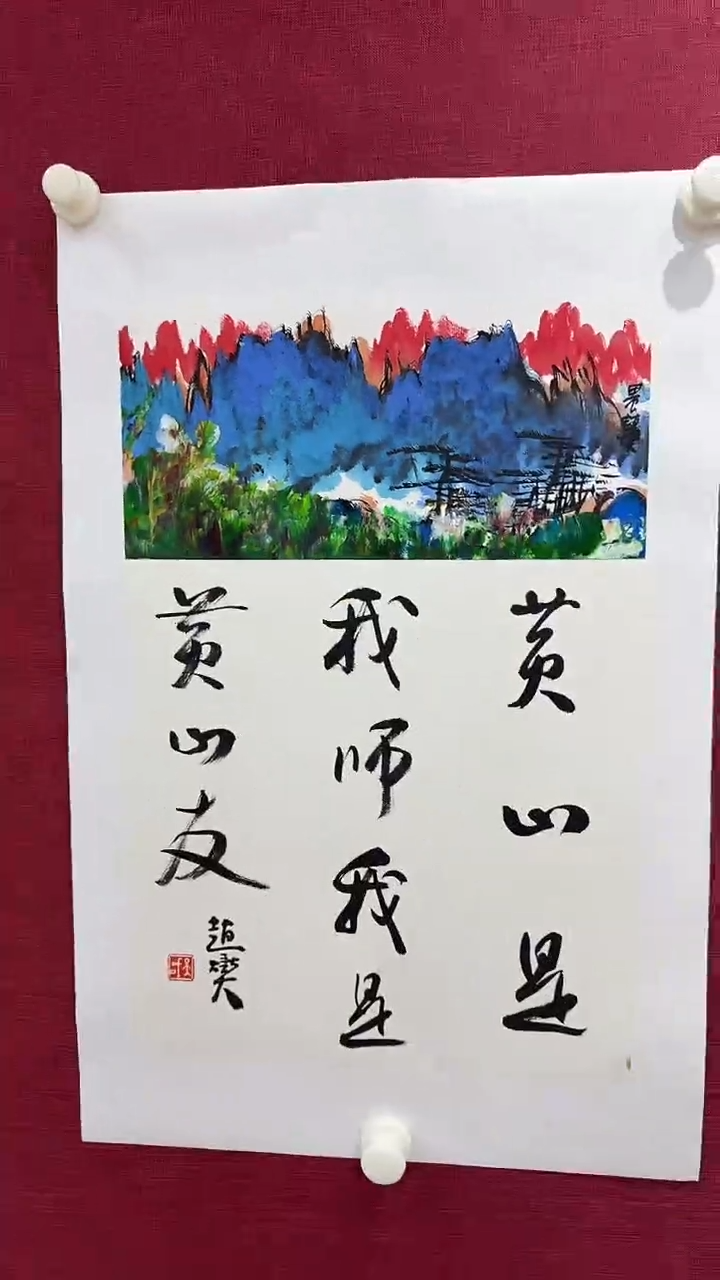 黄山是
我师我是
黄山友